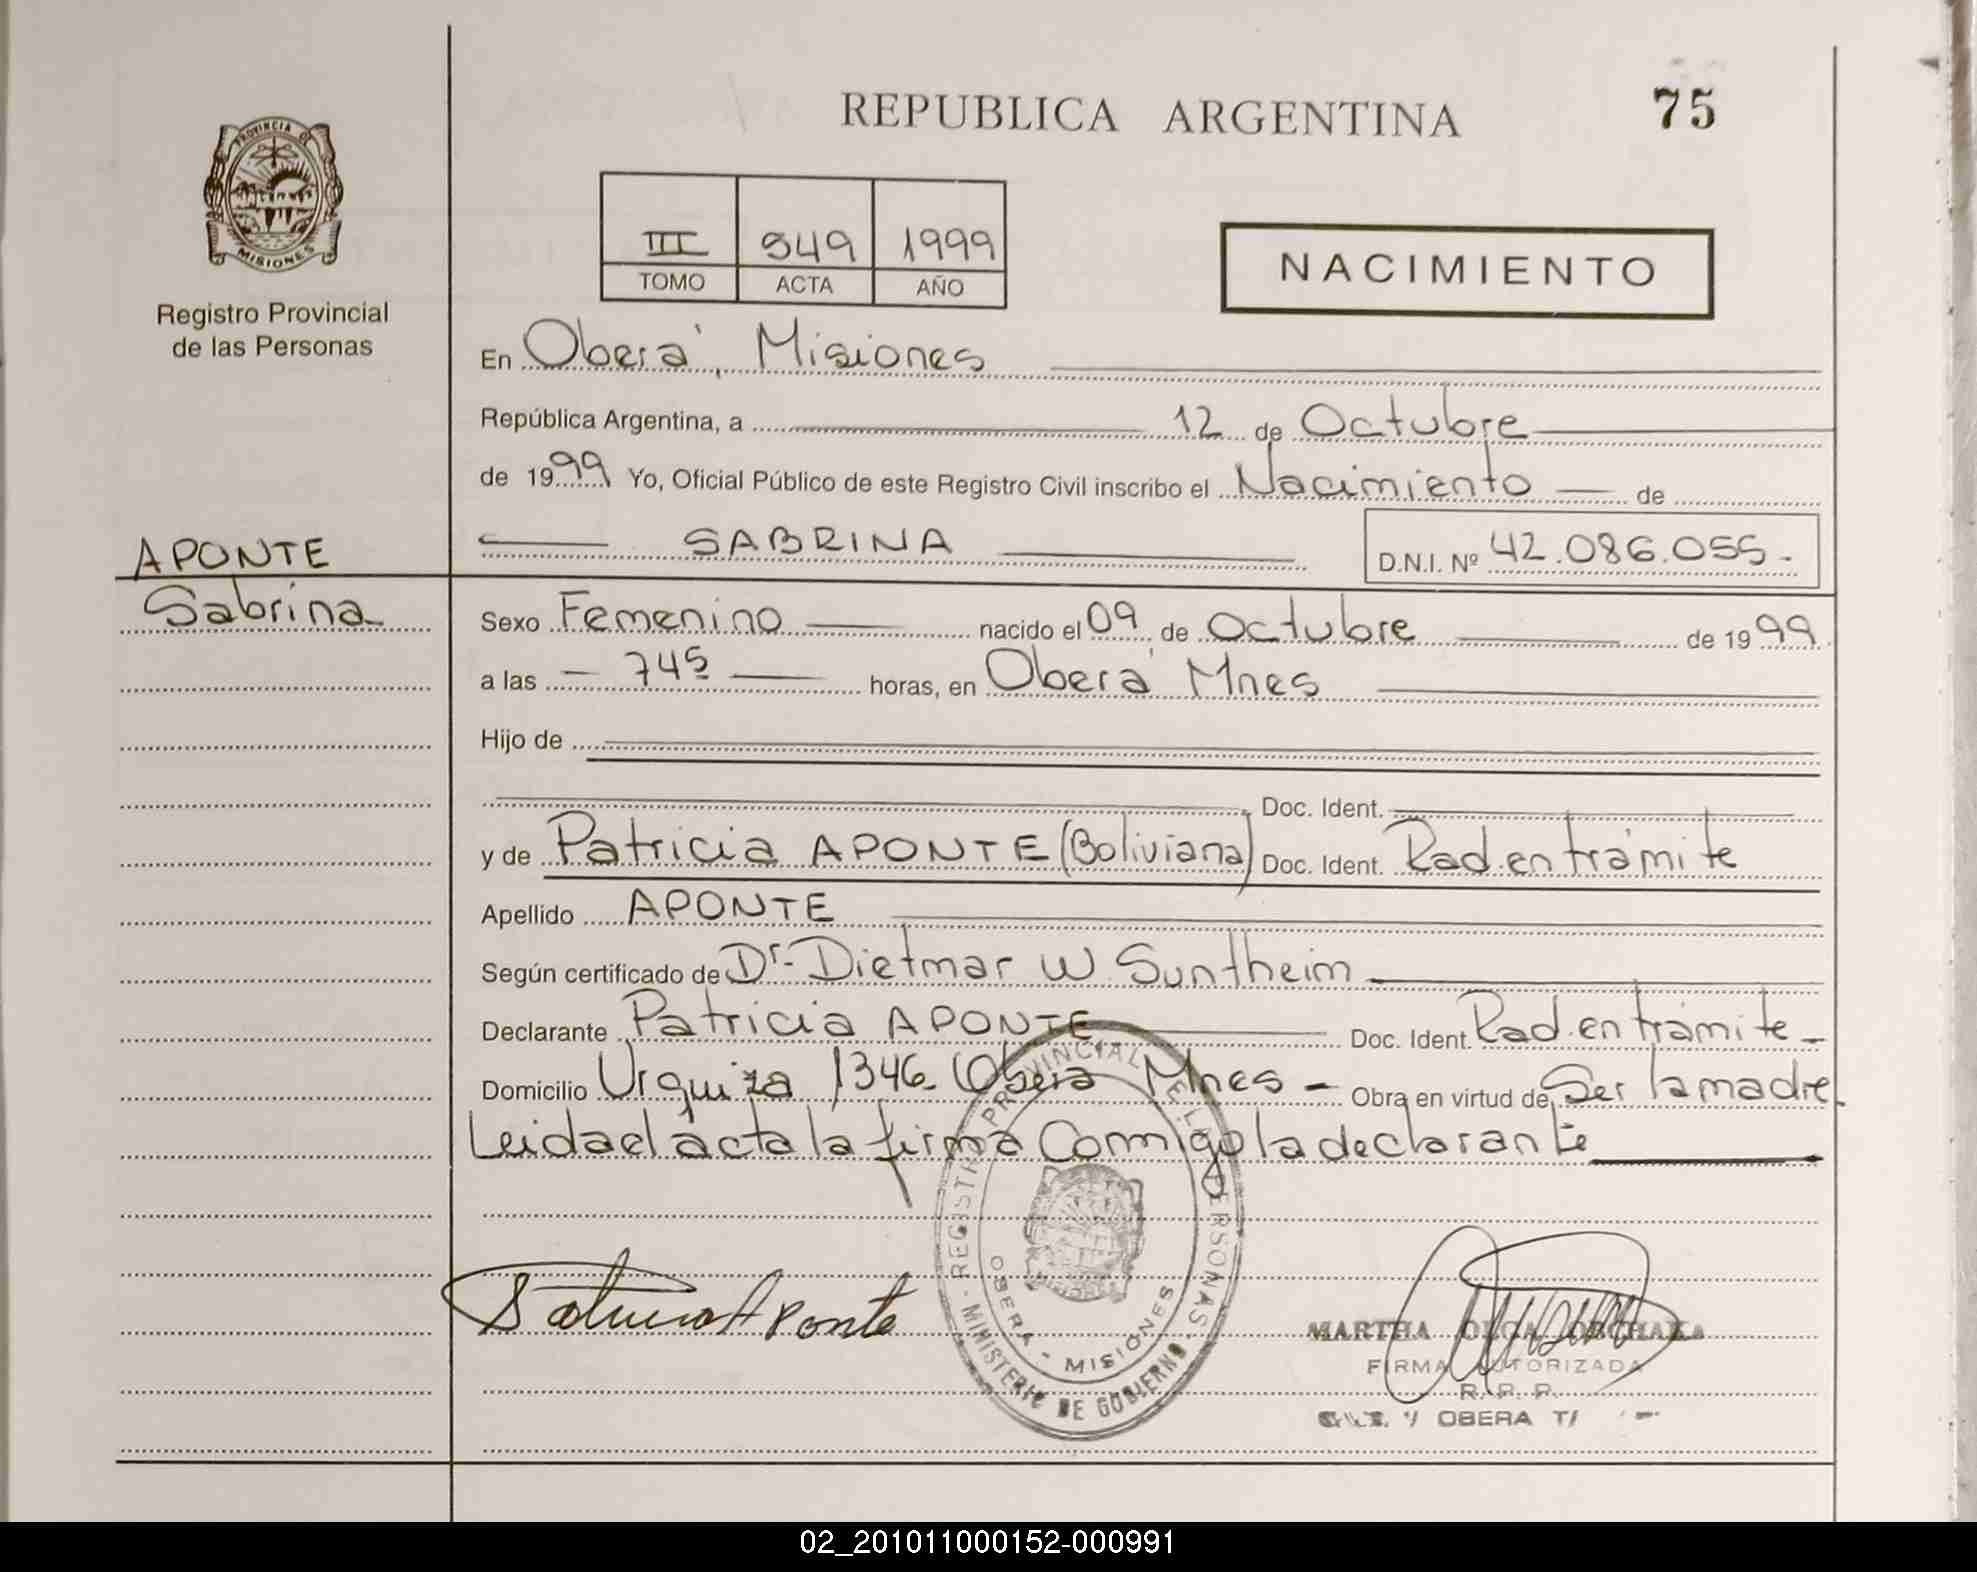 REPUBLICA ARGENTINA
75
PROVINCIA DE
MISIONES
Registro Provincial
de las Personas
III 949 1999
TOMO ACTA AÑO
NACIMIENTO
En Oberá, Misiones
República Argentina, a 12 de Octubre
de 1999 Yo, Oficial Público de este Registro Civil inscribo el Nacimiento de
SABRINA D.N.I. Nº 42.086.055.-
APONTE
Sabrina
Sexo Femenino nacido el 09 de Octubre de 1999
a las 745 horas, en Oberá Mnes
Hijo de
Doc. Ident.
y de Patricia APONTE (Boliviana) Doc. Ident. Rad. en trámite
Apellido APONTE
Según certificado de Dr. Dietmar W. Suntheim
Declarante Patricia APONTE Doc. Ident. Rad. en trámite -
Domicilio Urquiza 1346. Oberá Mnes - Obra en virtud de Ser la madre.
Leida el acta la firma Conmigo la declarante
REGISTRO PROVINCIAL DE LAS PERSONAS
OBERA - MISIONES
- MINISTERIO DE GOBIERNO -
Patricia Aponte
MARTHA OLGA
FIRMA AUTORIZADA
R. P. P.
OBERA
02_201011000152-000991